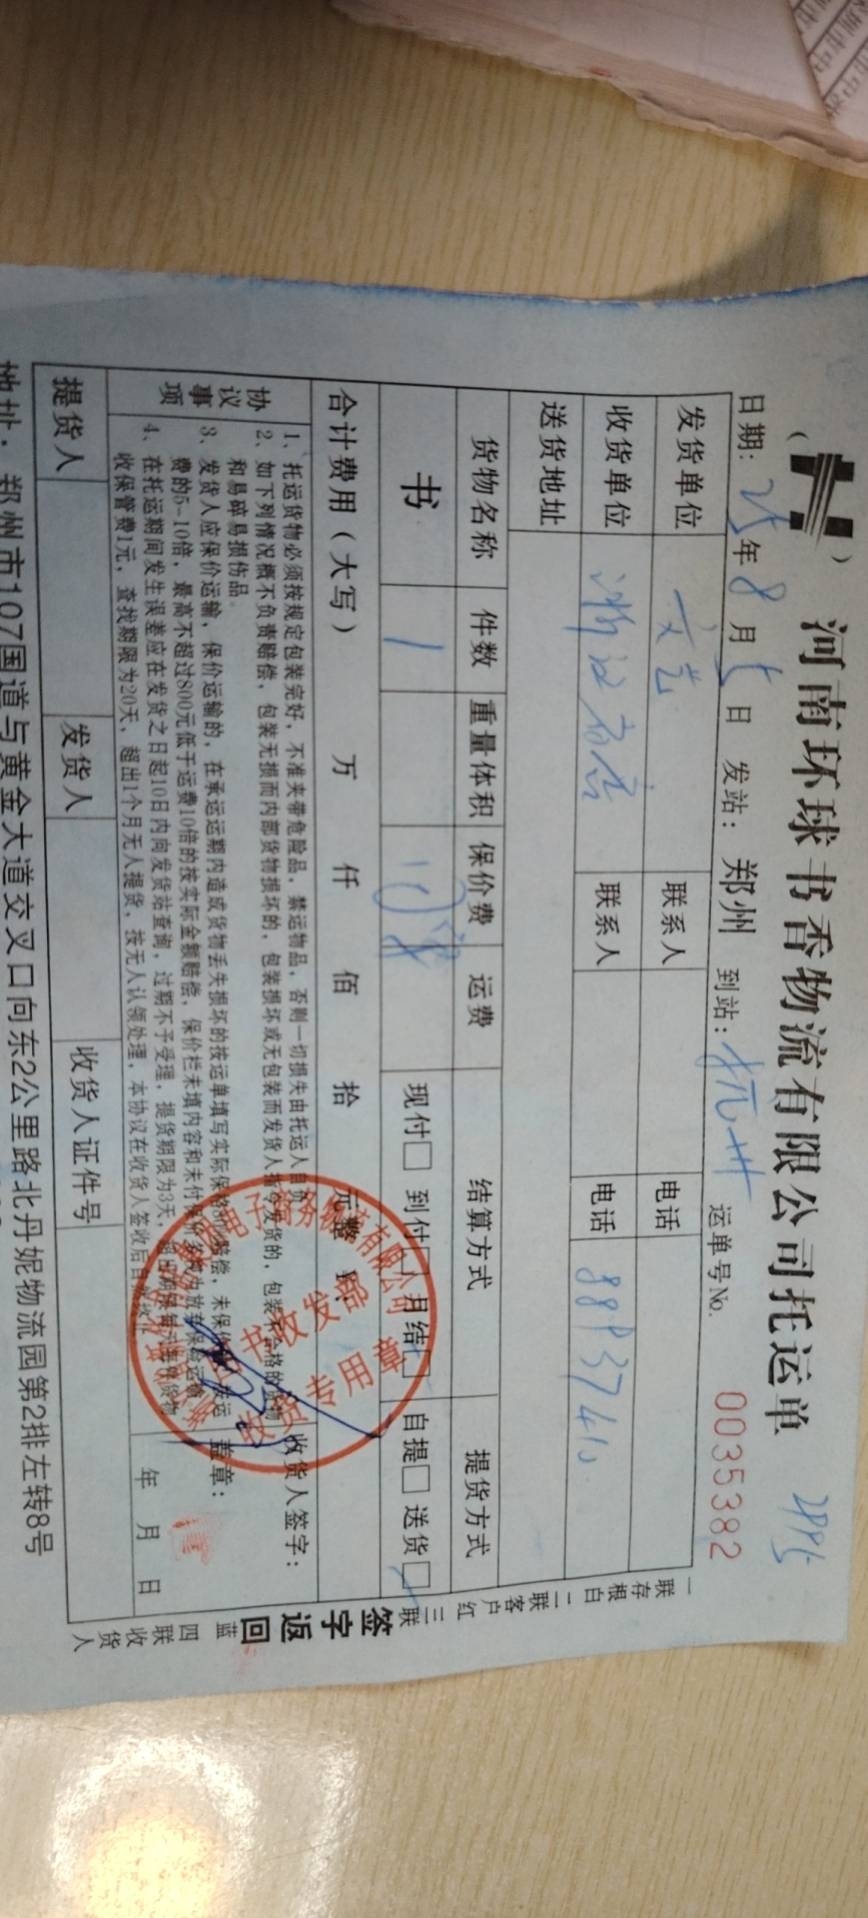 河南环球书香物流有限公司托运单
日期: 25年8月5日 发站: 郑州 到站: 杭州 运单号No. 0035382
发货单位 文艺 联系人 电话
收货单位 浙江 联系人 电话
送货地址
货物名称 件数 重量体积 保价费 运费 结算方式 提货方式
书 1 现付□ 到付□ 月结□ 自提□ 送货□
合计费用(大写) 万 仟 佰 拾 元整 ¥:
协议事项
1、托运货物必须按规定包装完好,不准夹带危险品,禁运物品,否则一切损失由托运人自负
2、如下列情况概不负责赔偿,包装无损而内部货物损坏的,包装损坏或无包装而发货人指令发货的,包装不合格的货物
和易碎易损伤品
3、发货人应保价运输,保价运输的,在承运远期内造成货物丢失损坏的按运单填写实际保价赔偿,未保价
费的5-10倍,最高不超过800元低于运费10倍的按实际金额赔偿,保价栏未填内容和未付保价
4、在托运期间发生误差应在发货之日起10日内向发货站查询,过期不予受理,提货期限为3天,
收保管费1元,查找期限为20天,超出1个月无人提货,按无人认领处理,本协议在收货人签收后
收货人签字:
盖章:
年 月 日
提货人 发货人 收货人证件号
地址:郑州市107国道与黄金大道交叉口向东2公里路北丹妮物流园第2排左转8号
一联存根白 二联客户红 三联签字返回蓝 四联收货人
电子商务 有限公司
书收发部
收货专用章